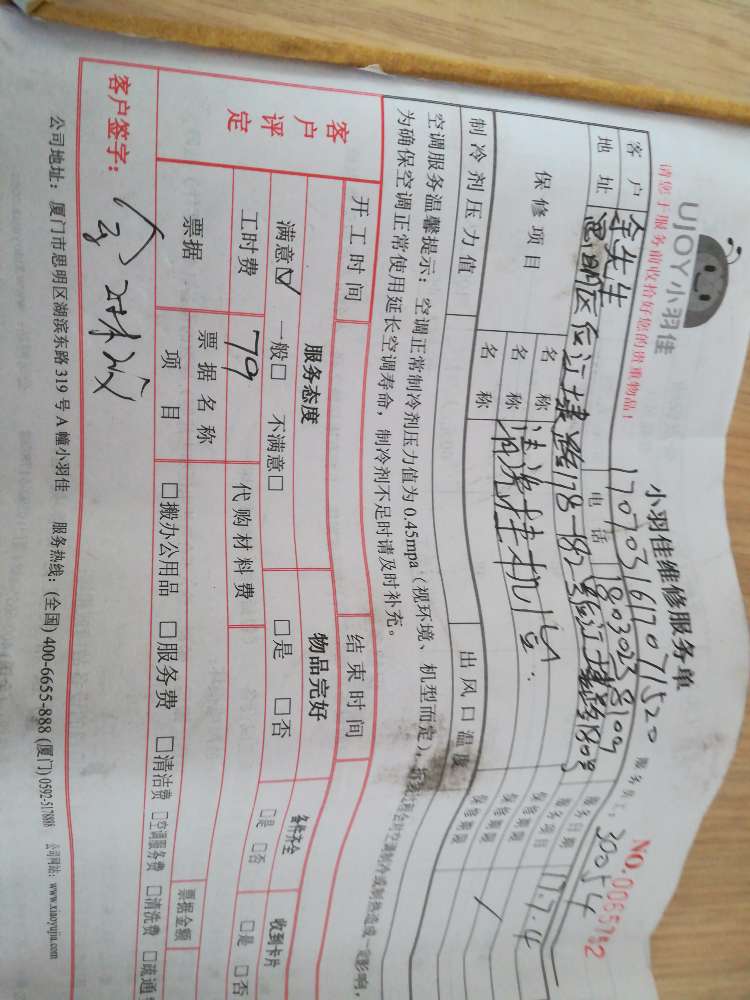 UJOY小羽佳
小羽佳维修服务单
NO.0065782
请您于服务前收拾好您的贵重物品!
170703161707 1520
服务员工: 30054
客户 余先生
电话 18030238109
服务日期 17.7.4
地址 思明区
178-182
808
服务项目
保修项目
名称 清洗挂机1台
保修期限
名称
保修期限
名称
保修期限
制冷剂压力值
出风口温度
空调服务温馨提示: 空调正常制冷剂压力值为 0.45mpa (视环境、机型而定),
为确保空调正常使用延长空调寿命, 制冷剂不足时请及时补充。
开工时间
结束时间
客户评定
服务态度
物品完好
备件齐全
收到卡片
满意☑ 一般□ 不满意□
□是 □否
□是 □否
□是 □否
工时费 79
代购材料费
票据
票据名称
票据金额
项目
□搬办公用品 □服务费 □清洁费 □空调服务费 □清洗费 □疏通
客户签字:
公司地址: 厦门市思明区湖滨东路 319 号 A 幢小羽佳 服务热线: (全国) 400-6655-888 (厦门) 0592-5178888 公司网站: www.xiaoyujia.com